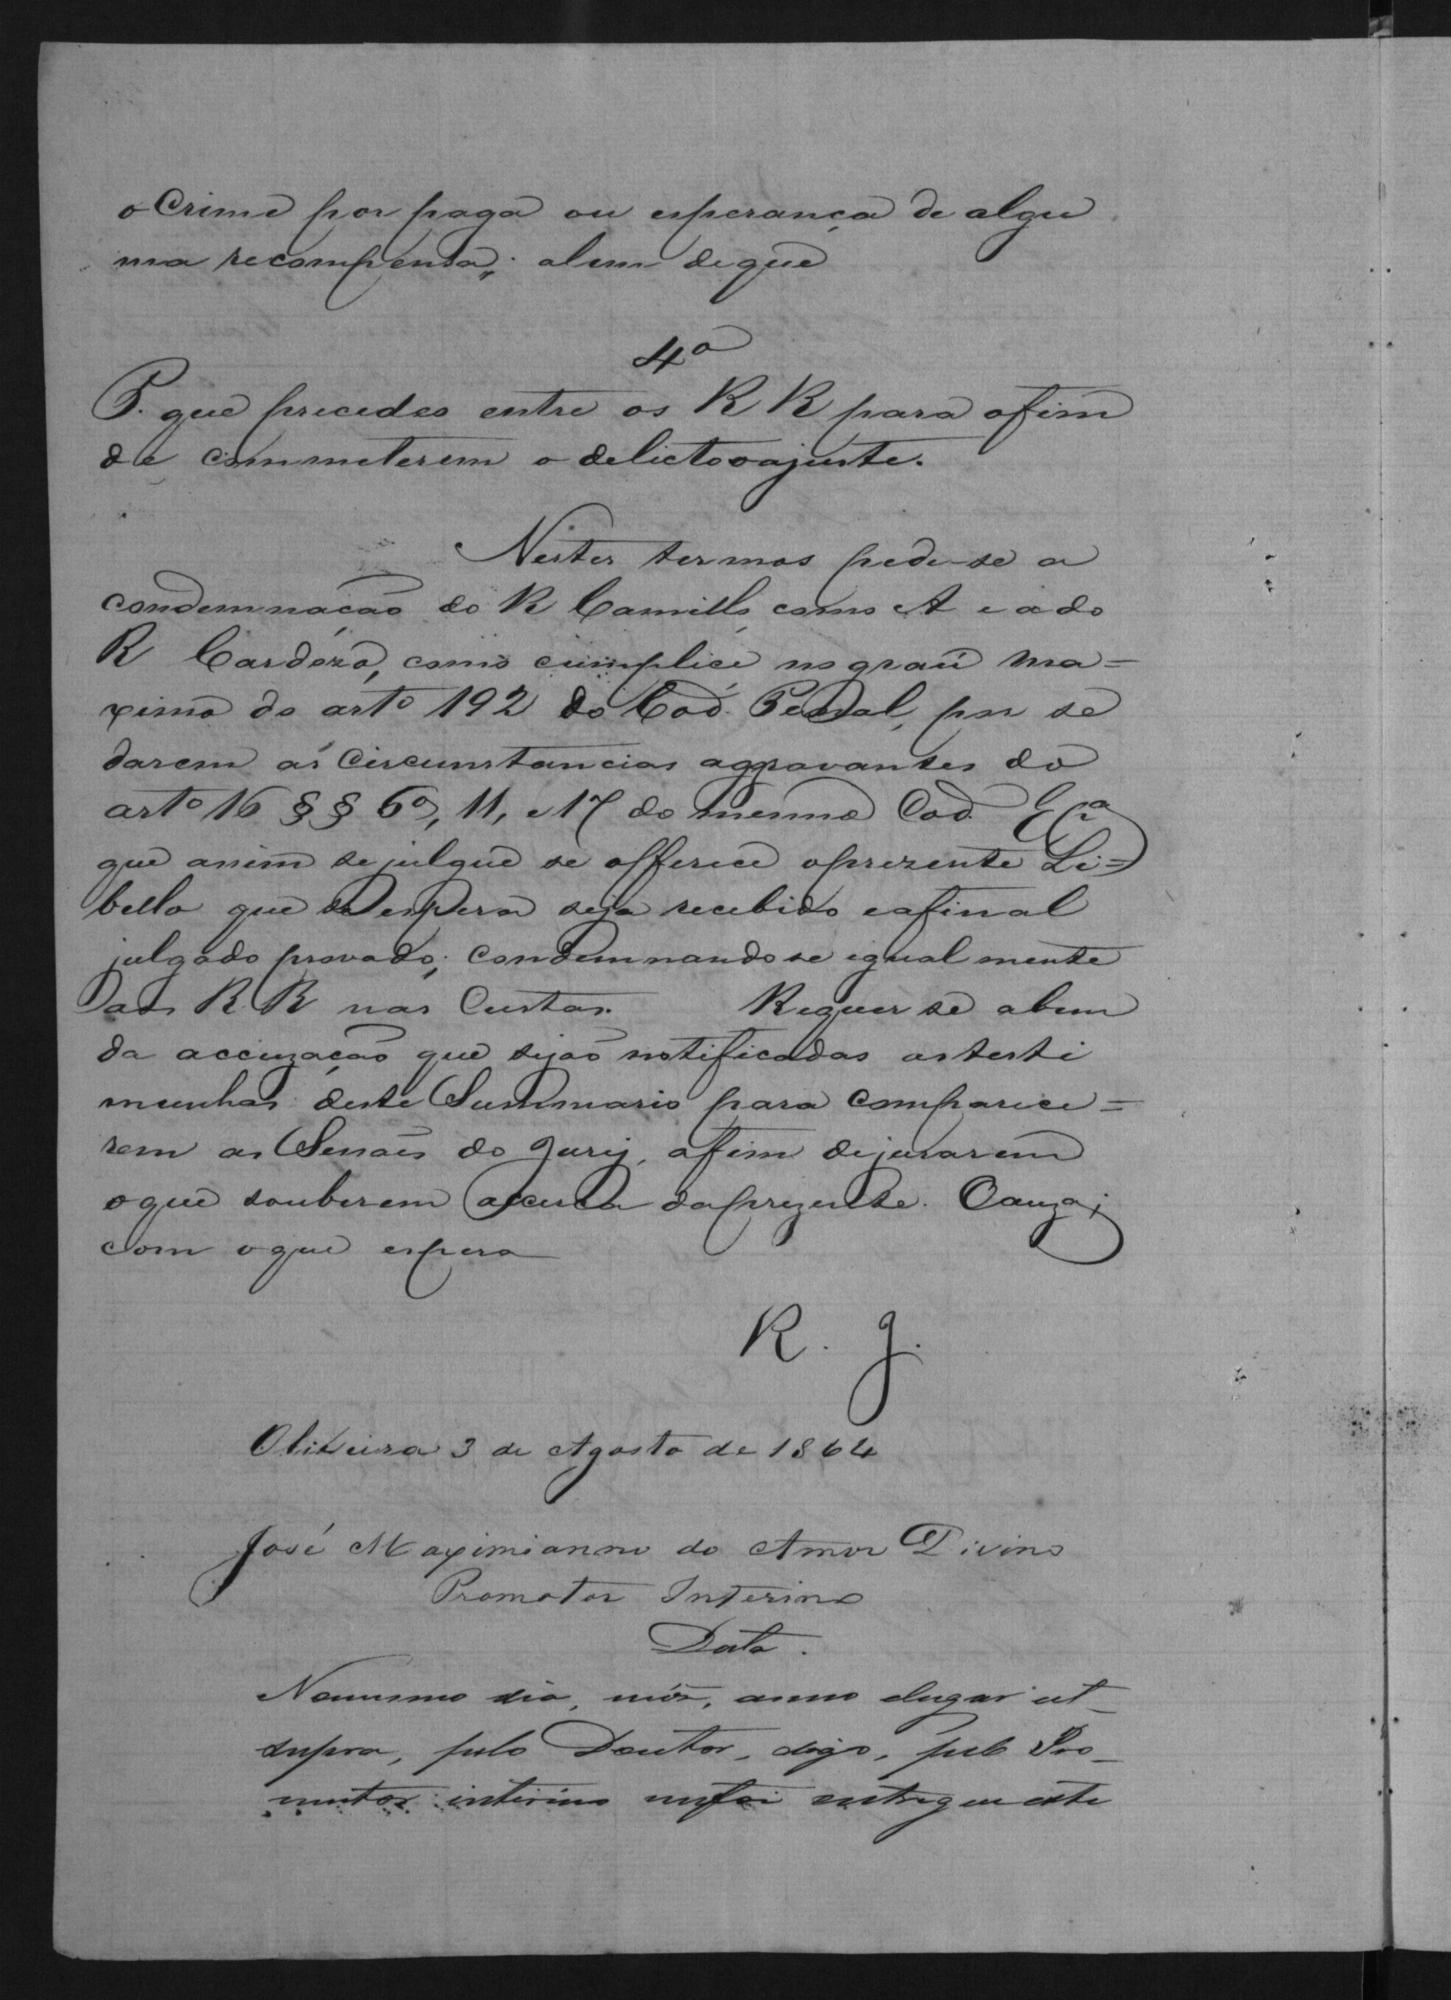 o Crime por paga ou esperança de algu
ma recompensa; alem de que
4º
P. que precedeo entre os R R para o fim
de commeterem o delicto o ajuste.
Nestes termos pede-se a
condemnação do R Camillo, como A e a do
R Cardozo, como cumplice no grau ma=
ximo do artº 192 do Cod. Penal, por se
darem as circumstancias aggravantes do
artº 16 §§ 6º, 11, e 17 do mesmo Cod. E pª
que assim se julgue se offerece o prezente Li=
bello que se espera seja recebido e afinal
julgado provado; condemnando se igual mente
aos R. R nas Custas. Requer se abem
da accuzação que sejão notificadas as testi
munhas deste Summario para comparece=
rem as Sessões do Jury, afim de jurarem
o que souberem acerca da prezente Cauza;
com o que espera
R. J.
Oliveira 3 de Agosto de 1864
José Maximianno do Amor Divino
Promotor Interino
Data.
No mesmo dia, mês, anno e lugar ut
supra, pelo Doutor, digo, pelo Pro-
motor interino me foi entregue este